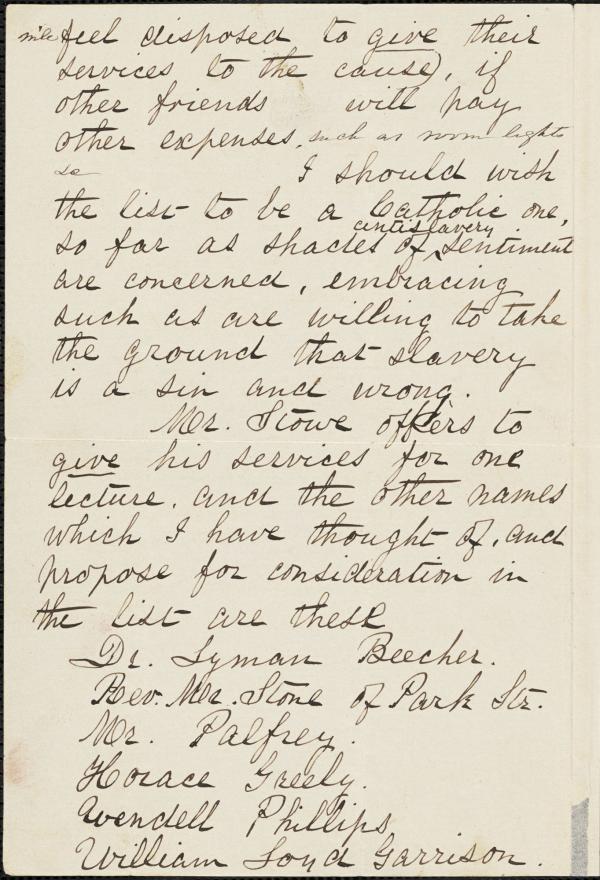 feel disposed to give their
services to the cause), if
other friends will pay
other expenses, such as room lights
&c I should wish
the list to be a Catholic one,
so far as shades of antislavery sentiment
are concerned, embracing
such as are willing to take
the ground that slavery
is a sin and wrong.
Mr. Stowe offers to
give his services for one
lecture. and the other names
which I have thought of, and
propose for consideration in
the list are these
Dr. Lyman Beecher.
Rev. Mr. Stone of Park Str.
Mr. Palfrey.
Horace Greely.
Wendell Phillips
William Loyd Garrison.